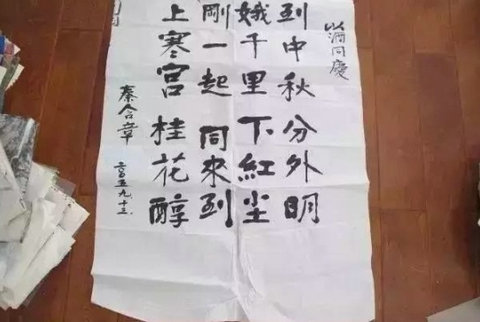 以酒同慶
到中秋分外明
娥千里下紅尘
剛一起同來到
上寒宮桂花醇
秦含章
二〇〇五.九.十三.